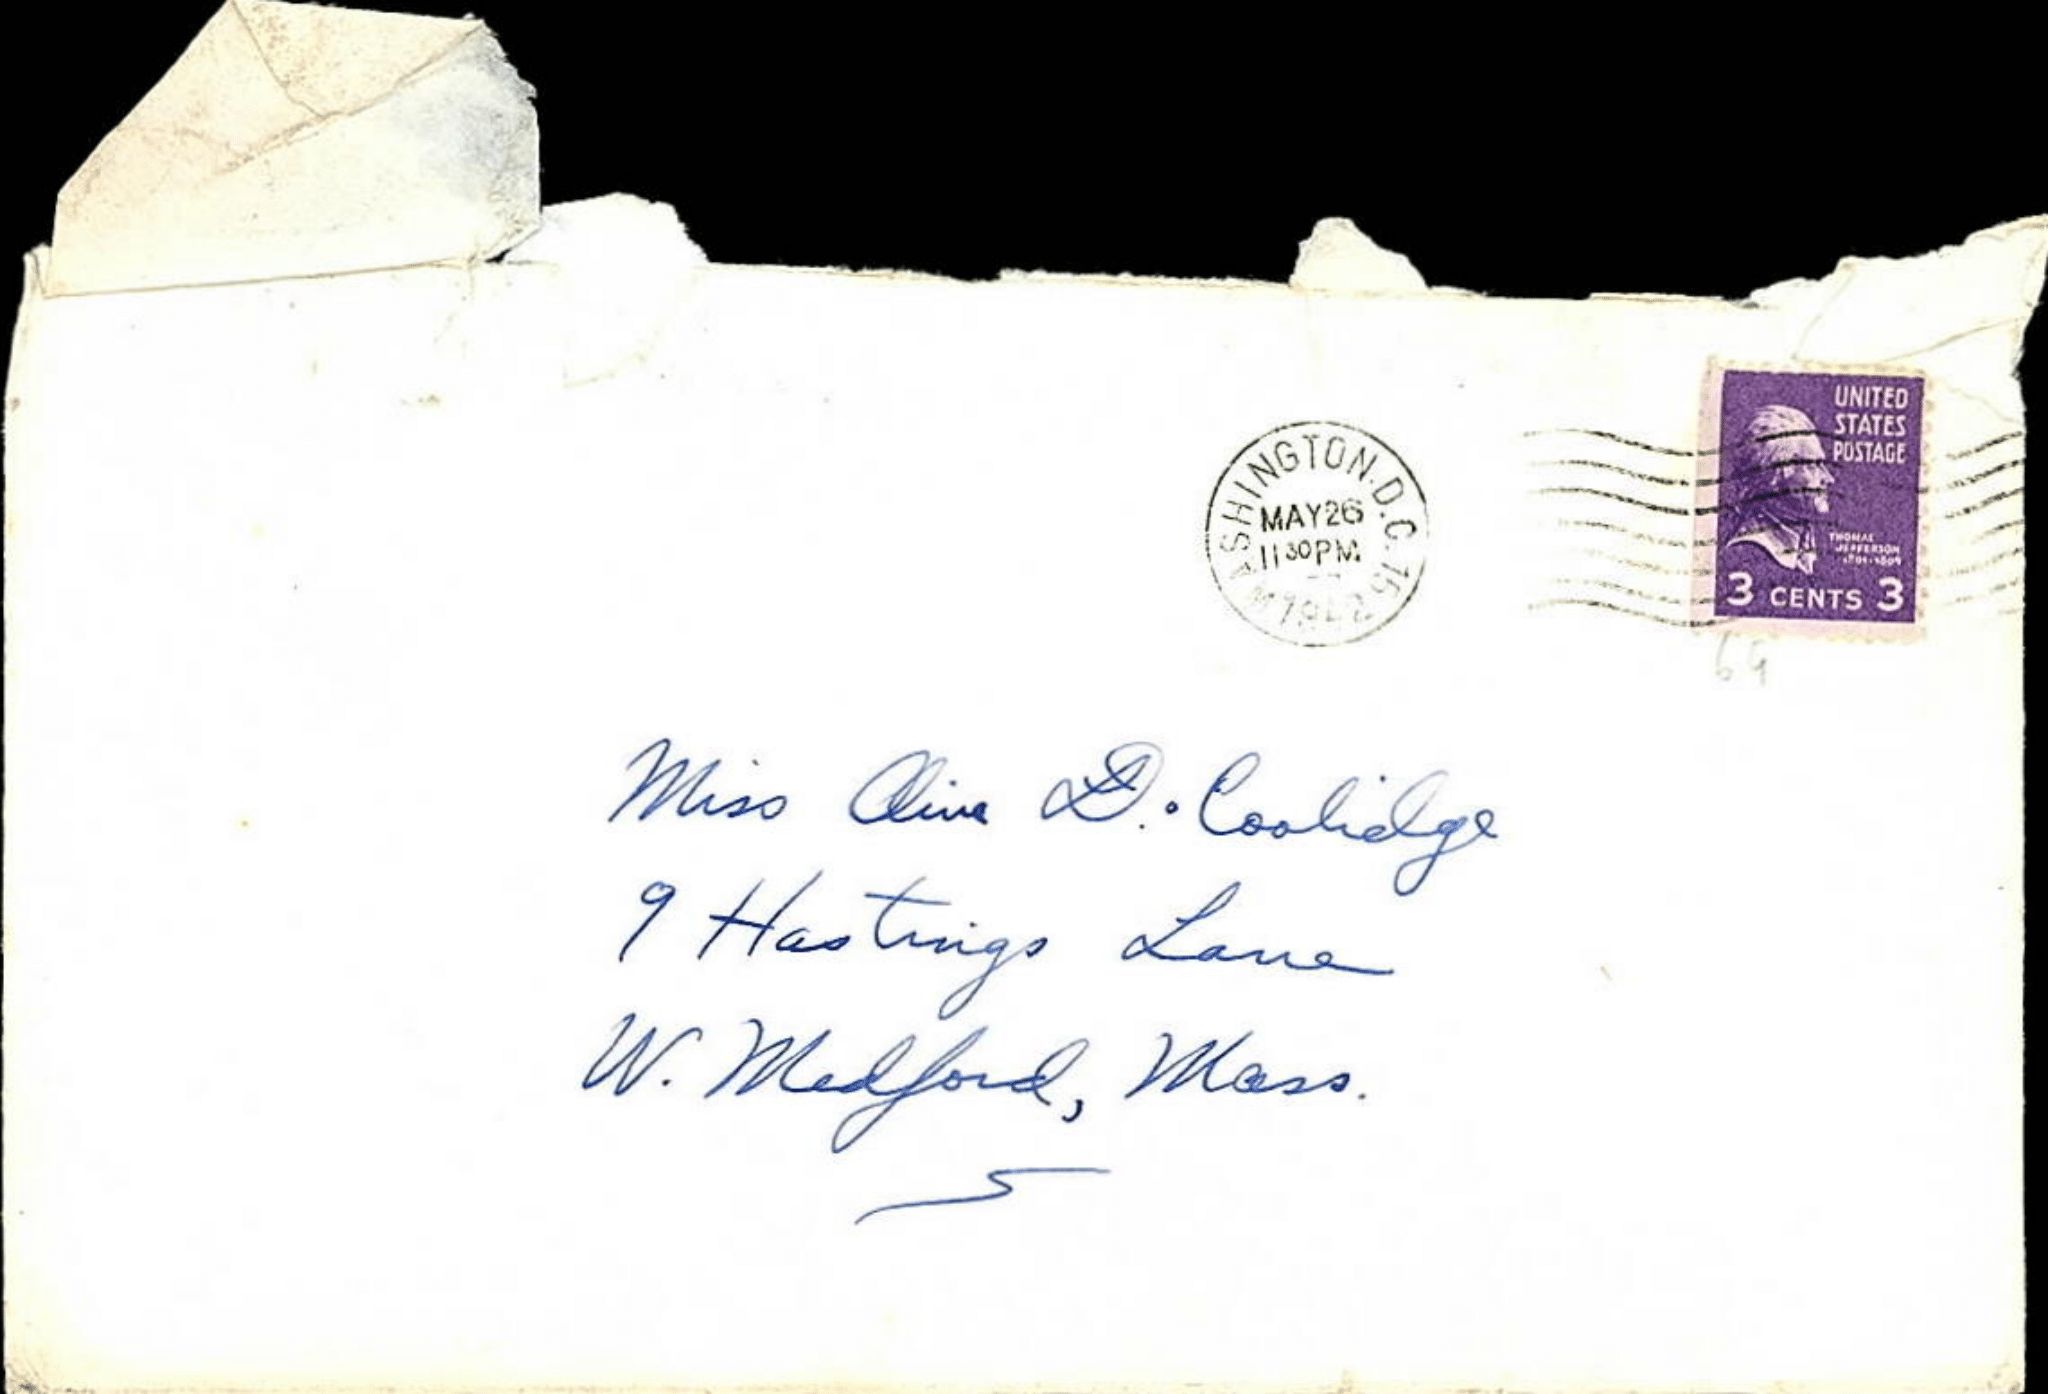 WASHINGTON. D.C. 15
MAY 26
11 30 PM
1942
UNITED
STATES
POSTAGE
THOMAS
JEFFERSON
3 CENTS 3
Miss Olive D. Coolidge
9 Hastings Lane
W. Medford, Mass.